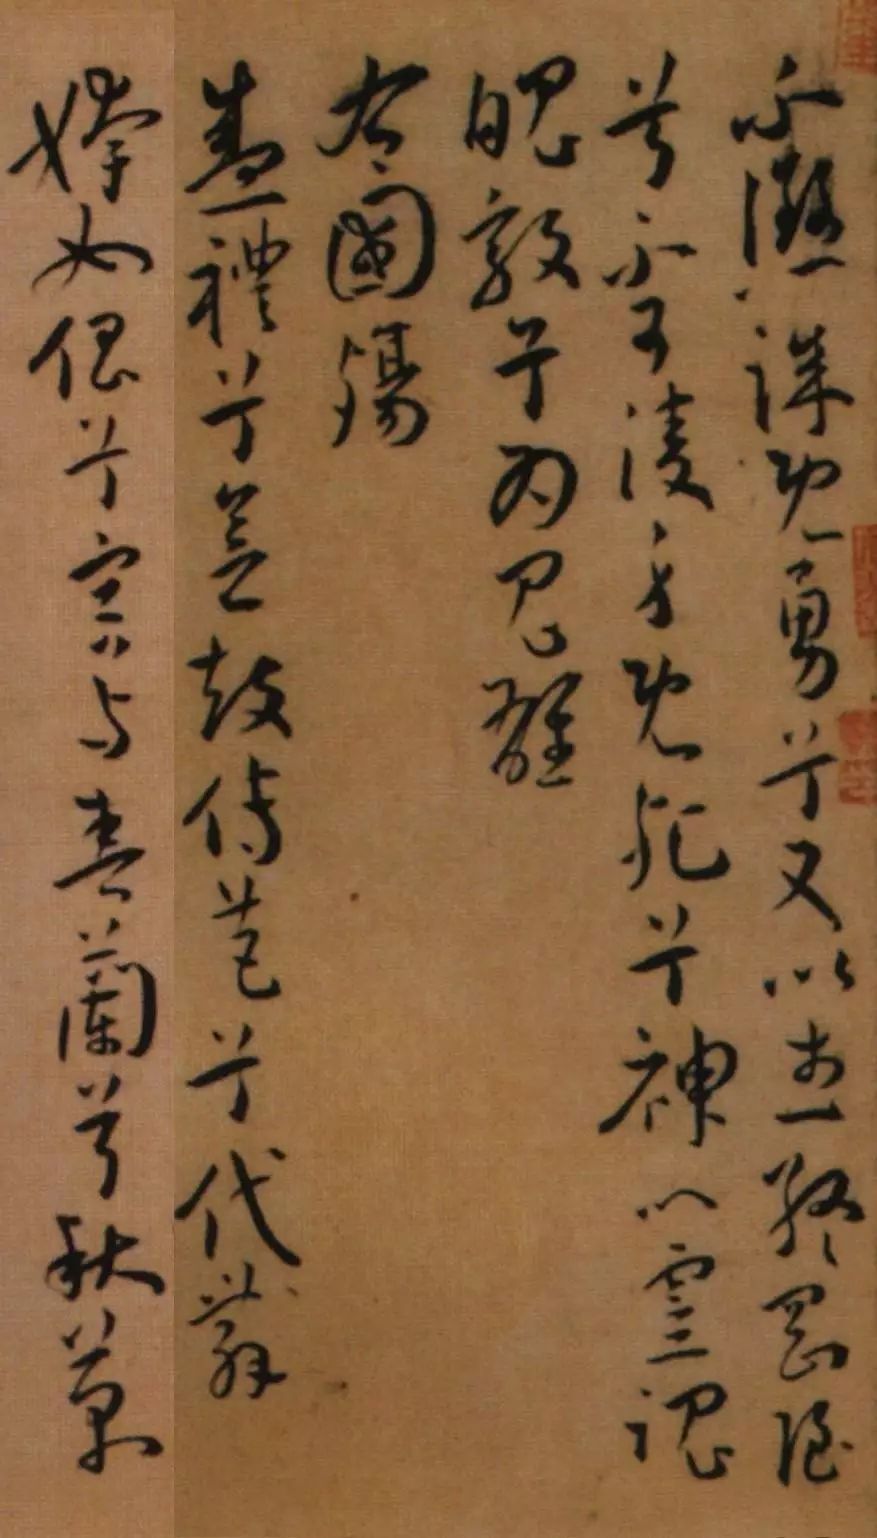 不懲誠既勇兮又以武終剛強
兮不可淩身既死兮神以靈魂
魄毅兮為鬼雄
右國殤
盛禮兮會鼓傳芭兮代舞
姱女倡兮容與春蘭兮秋菊